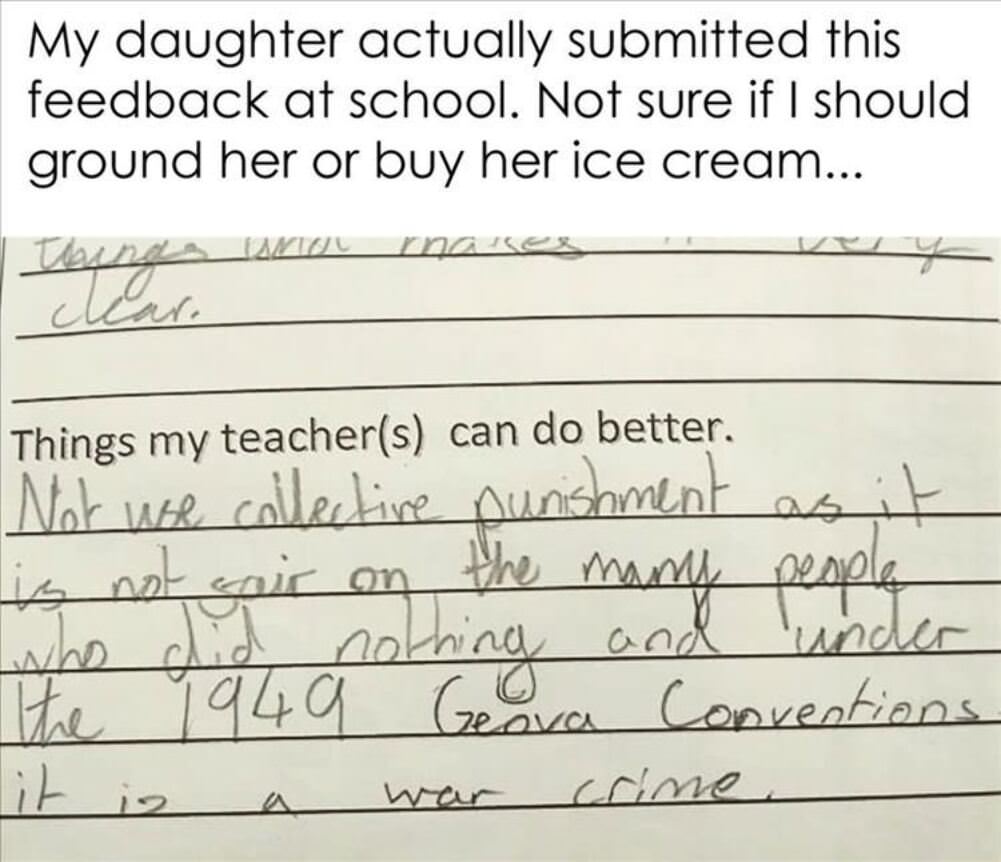 My daughter actually submitted this
feedback at school. Not sure if I should
ground her or buy her ice cream...
things what makes it very
clear.
Things my teacher(s) can do better.
Not use collective punishment as it
is not fair on the many people
who did nothing and under
the 1949 Genva Conventions
it is a war crime.